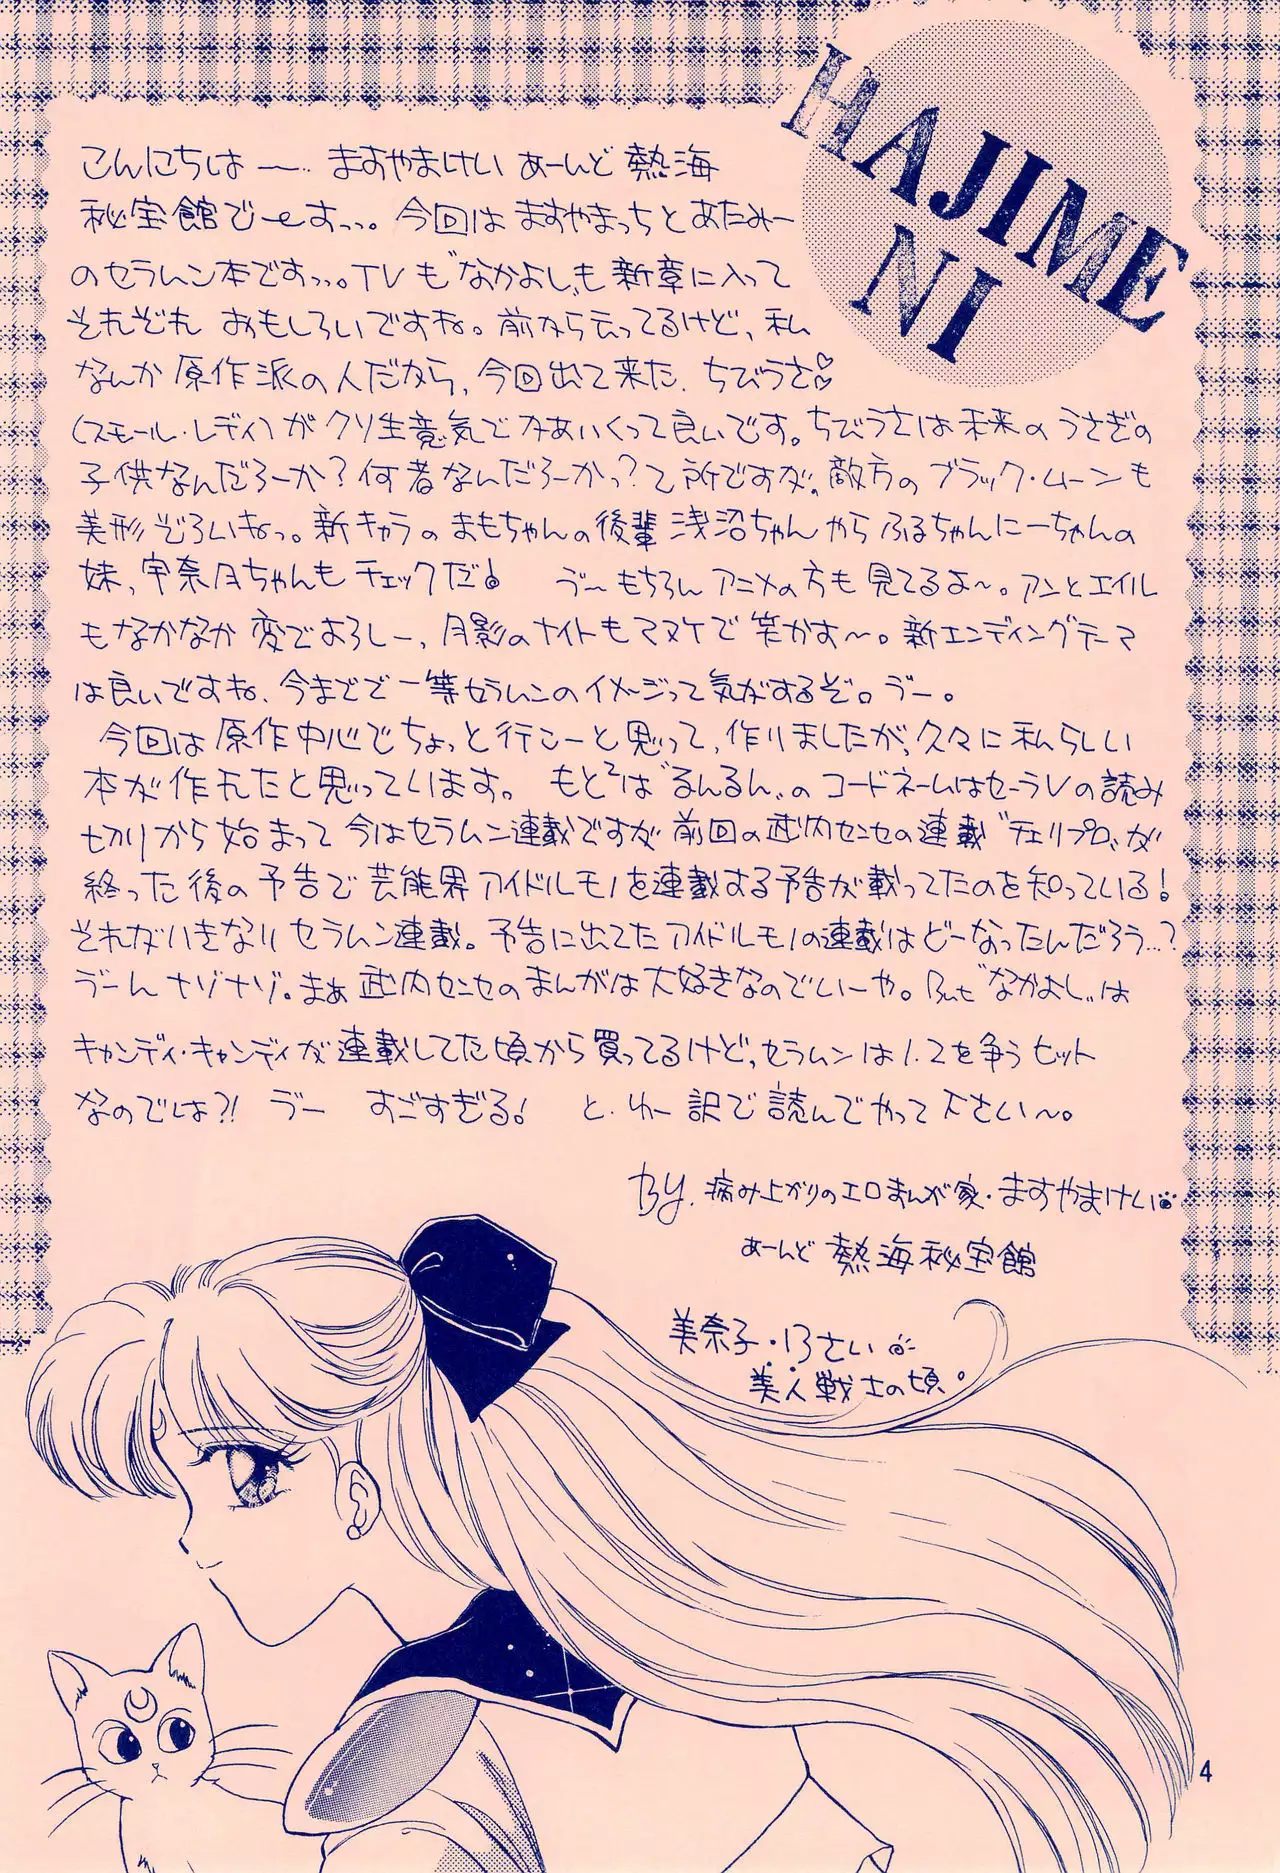 HAJIME
NI
こんにちは〜… ますやまけい あーんど 熱海
秘宝館でーすっっ。今回は ますやまっちと あたみー
のセラムン本ですっっ。TVも"なかよし"も 新章に入って
それぞれ おもしろいですね。前から云ってるけど、私
なんか 原作派の人だから、今回出て来た、ちびうさ♡♡
(スモール・レディ)が クソ生意気で かあいくって良いです。ちびうさは未来の うさぎの
子供なんだろーか?何者なんだろーかっ?て所ですが、敵方の ブラック・ムーンも
美形ぞろいねっ。新キャラの まもちゃんの後輩 浅沼ちゃん やら ふるちゃんにーちゃんの
妹、宇奈月ちゃんも チェックだ! ゔ〜 もちろん アニメの方も 見てるよ〜。アンとエイル
もなかなか 変でよろしー、月影のナイトもマヌケで 笑かす〜。新エンディングテーマ
は良いですね、今までで一等セラムンのイメージって気がするぞ。ゔー。
今回は 原作中心でちょっと 行こーと思って、作りましたが、久々に 私らしい
本が 作れたと思っています。 もと²は"るんるん"の コードネームはセーラVの読み
切りから 始まって 今はセラムン連載ですが 前回の 武内センセの連載"チェリプロ"が
終った後の 予告で 芸能界アイドルモノを連載する予告が載ってたのを知っている!
それがいきなり セラムン連載。予告に出てた アイドルモノの連載はどーなったんだろう…?
ゔーん ナゾナゾ。まぁ 武内センセのまんがは 大好きなのでいーや。But"なかよし"は
キャンディ・キャンディが連載してた頃から買ってるけど、セラムンは1.2を争うヒット
なのでは?! ゔー すごすぎる! と・ゆー訳で 読んでやって下さい〜。
By. 病み上がりのエロまんが家・ますやまけい
あーんど 熱海秘宝館
美奈子・13さい
美人戦士の頃。
4